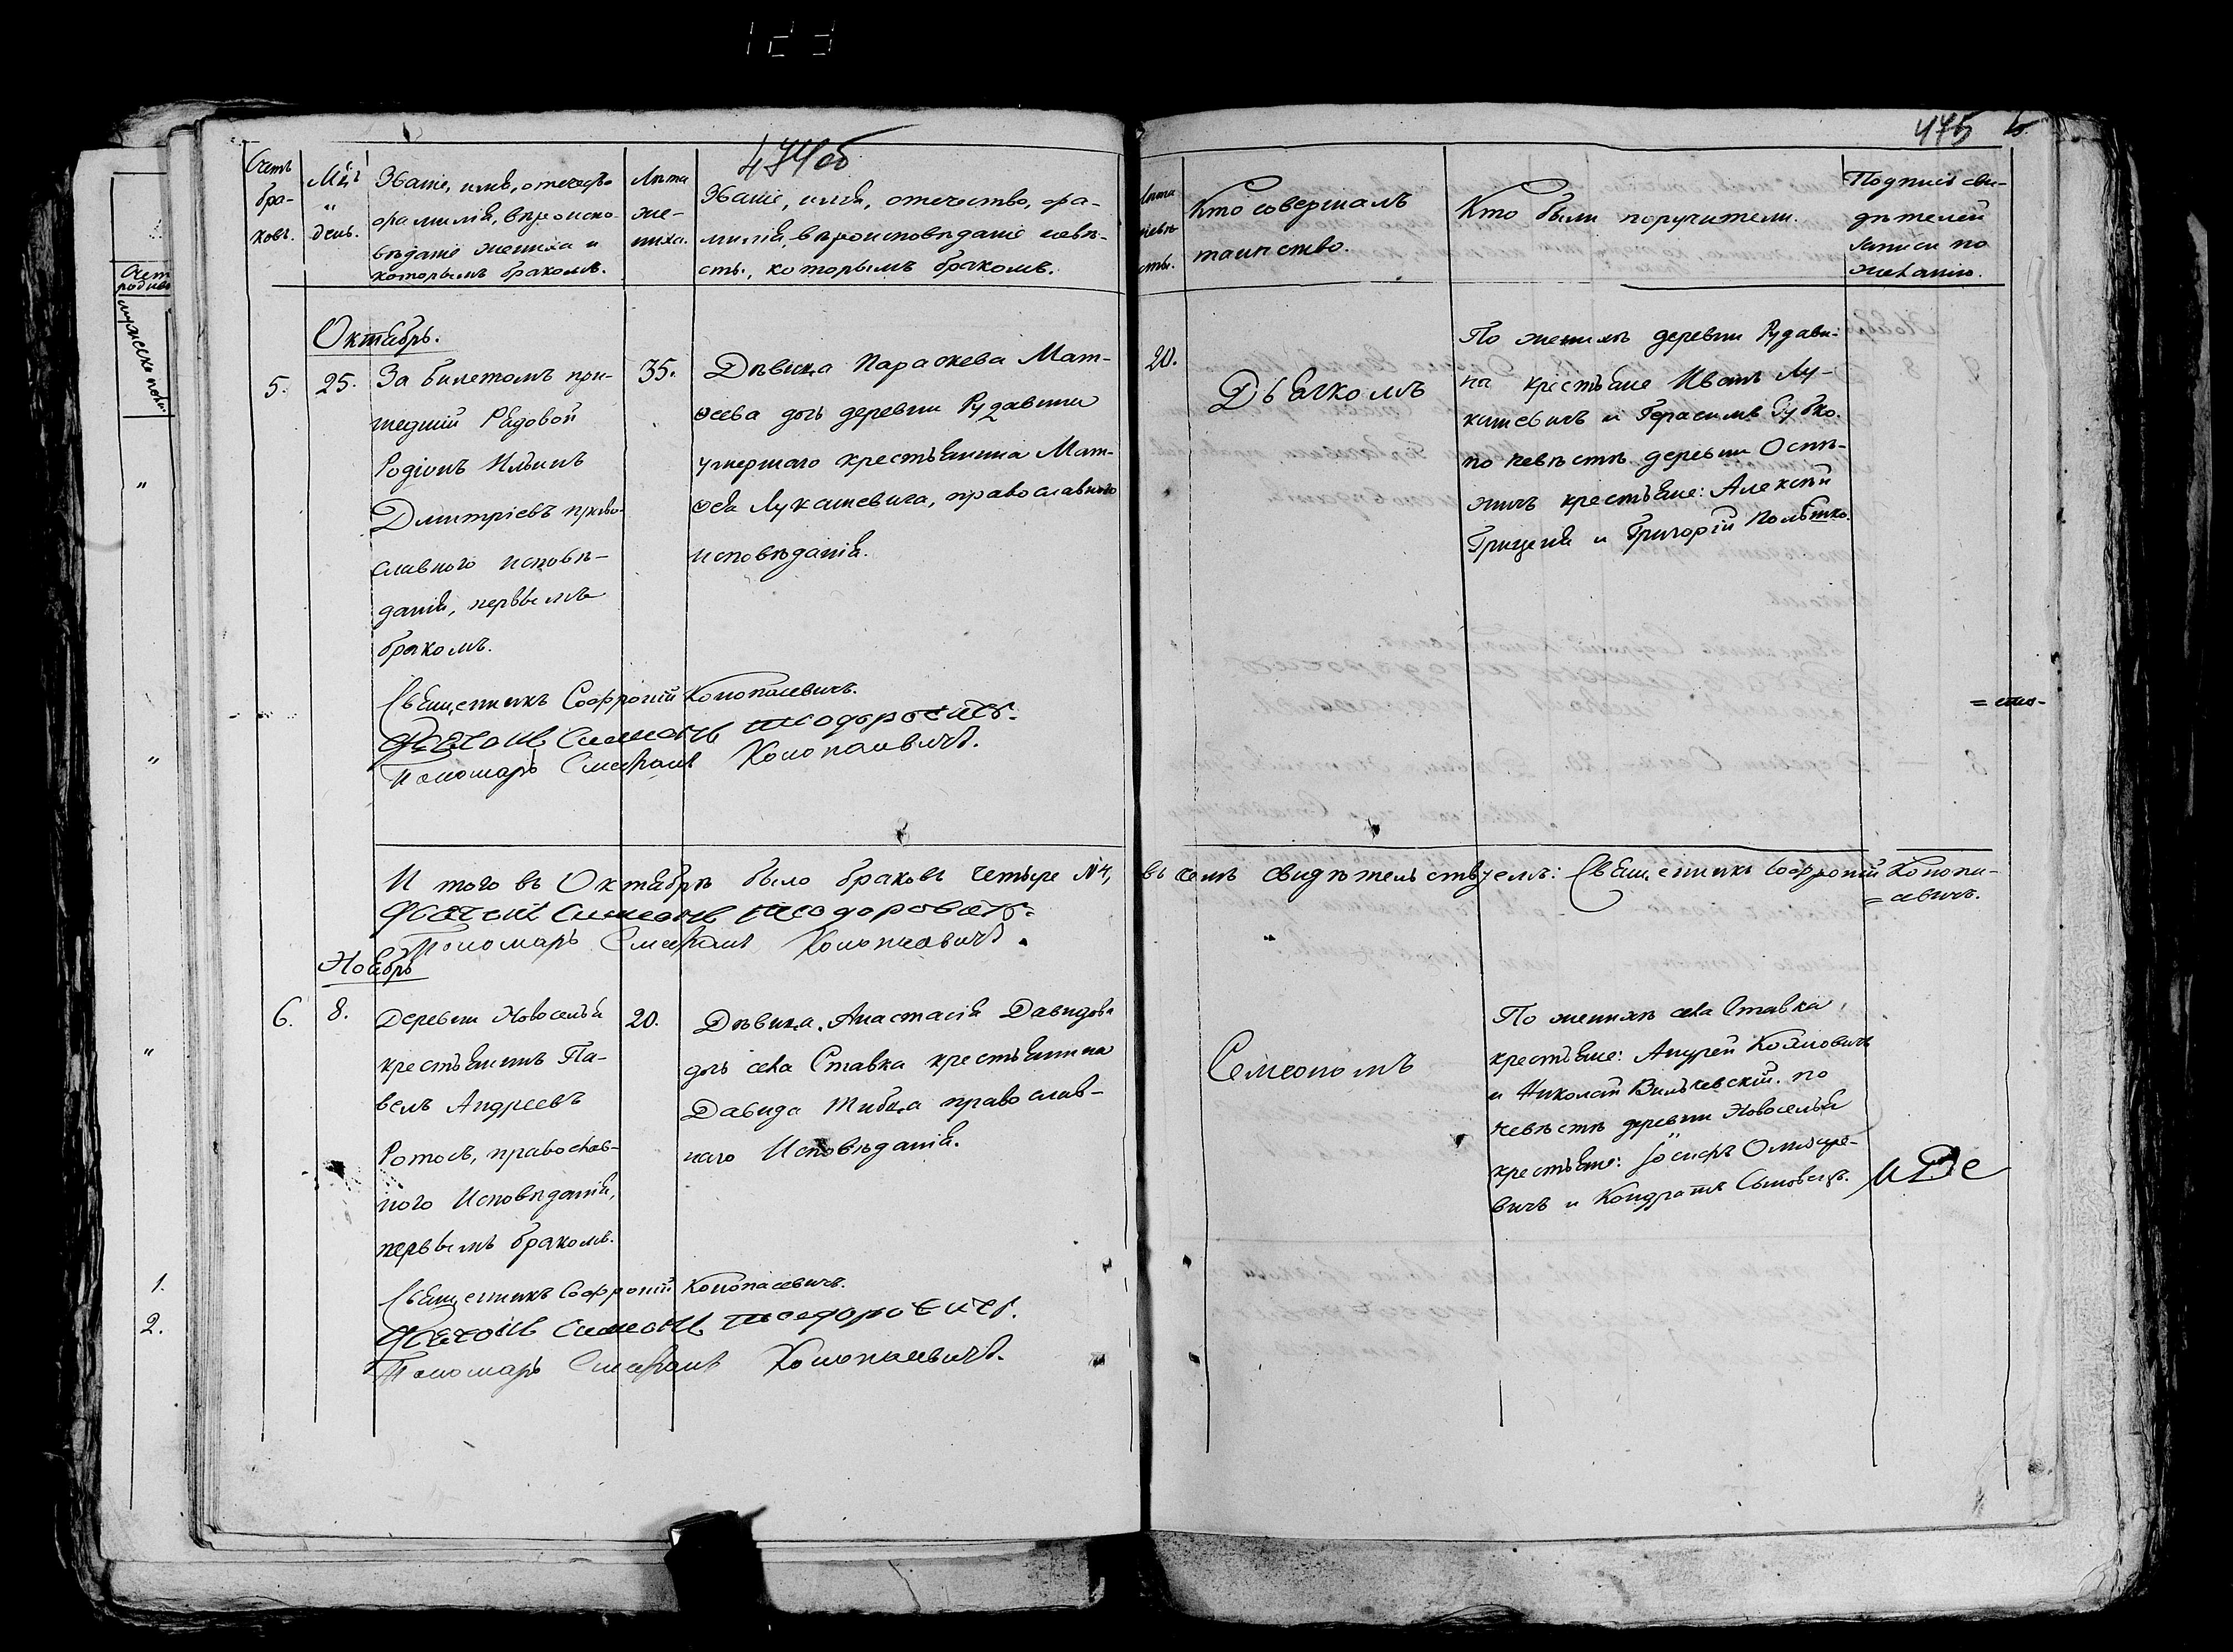 474об
475
Счетъ
бра-
ковъ.
Мцъ
и
день.
Званіе, имя, отечество
фамилія, вѣроиспо-
вѣданіе жениха и
которымъ бракомъ.
Лѣта
же-
ниха.
Званіе, имя, отечество, фа-
милія, вѣроисповѣданіе невѣ-
сты, которымъ бракомъ.
Лѣта
невѣ
сты.
Кто совершалъ
таинство.
Кто были поручители.
Подпись сви-
дѣтелей
записи по
желанію.
Октябрь.
5.
25.
За билетомъ при-
шедшій Рядовой
Родіонъ Ильинъ
Дмитріевъ право-
славного исповѣ-
данія, первымъ
бракомъ.
35.
Дѣвица Параскева Мат-
ѳеева дочь деревни Рудавина
умершаго крестьянина Мат-
ѳея Лукашевича, православного
исповѣданія.
20.
Дьячкомъ
По женихѣ деревни Рудави-
на крестьяне Иванъ Лу-
кашевичъ и Герасимъ Зубко.
по невѣстѣ деревни Остѣ-
жичъ крестьяне: Алексѣй
Гриценя и Григорій
Священникъ Софроній Конопасевичъ.
Дьячокъ Симеонъ Теодоровичъ.
Пономарь Стефанъ Конопасевичъ.
И того въ Октябрѣ было браковъ четыре №4,
въ чемъ свидѣтельствуемъ: Священникъ Софроній Конопа-
=севичъ.
Дьячокъ Симеонъ Теодоровичъ
Пономарь Стефанъ Конопасевичъ.
Ноябрь
6.
8.
Деревни Новоселья
крестьянинъ Па-
велъ Андреевъ
Ротосъ, православ-
ного Исповѣданія,
первымъ бракомъ.
20.
Дѣвица, Анастасія Давидова
дочь села Ставка крестьянина
Давида Шибца православ-
наго Исповѣданія.
Симеономъ
По женихѣ села Ставка,
крестьяне: Андрей
и Николай Вильчевскій. по
невѣстѣ деревни Новоселья
крестьяне: Іосифъ
вичъ и Кондратъ Сыновецъ.
Священникъ Софроній Конопасевичъ.
Дьячокъ Симеонъ Теодоровичъ.
Пономарь Стефанъ Конопасевичъ.
1.
2.